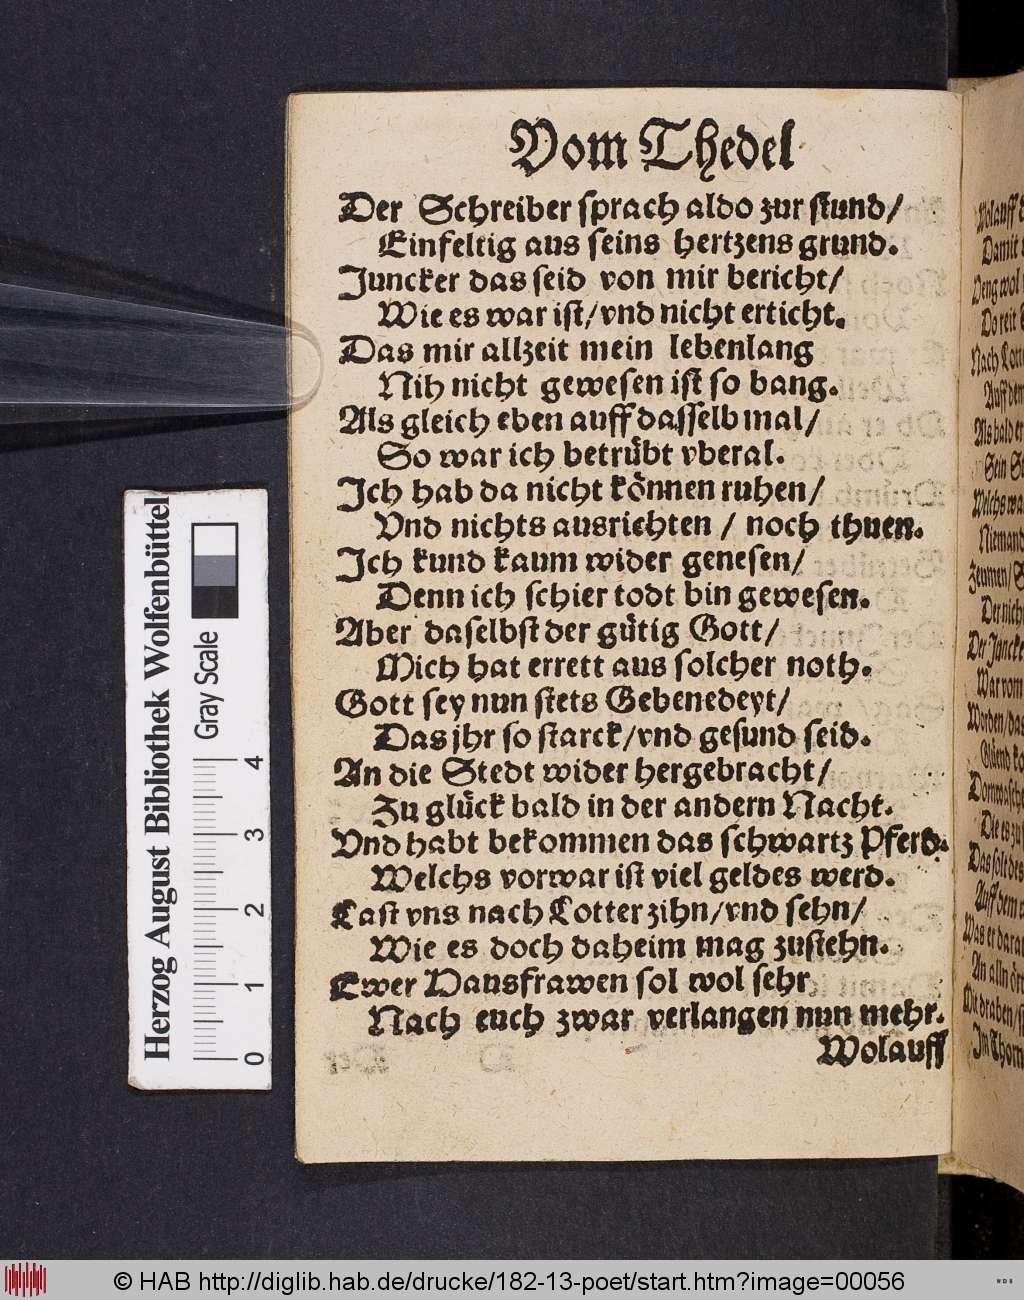 Vom Thedel
Der Schreiber sprach aldo zur stund/
Einfeltig aus seins hertzens grund.
Juncker das seid von mir bericht/
Wie es war ist/vnd nicht erticht.
Das mir allzeit mein lebenlang
Nih nicht gewesen ist so bang.
Als gleich eben auff dasselb mal/
So war ich betrübt vberal.
Ich hab da nicht können ruhen/
Vnd nichts ausrichten / noch thuen.
Ich kund kaum wider genesen/
Denn ich schier todt bin gewesen.
Aber daselbst der gütig Gott/
Mich hat errett aus solcher noth.
Gott sey nun stets Gebenedeyt/
Das jhr so starck/vnd gesund seid.
An die Stedt wider hergebracht/
Zu glück bald in der andern Nacht.
Vnd habt bekommen das schwartz Pferd.
Welchs vorwar ist viel geldes werd.
Last vns nach Lotter zihn/vnd sehn/
Wie es doch daheim mag zustehn.
Ewer Hausfrawen sol wol sehr
Nach euch zwar verlangen nun mehr.
Wolauff
Wolauff
Damit
Weng wol
Do reit
Nach
Auff den
Als bald er
Sein
Welchs
Niemand
Zeumen/
Der nich
Der Juncke
War vom
Worden/das
Glüend
Die es zu
Das solt des
Auff dem
Was er daran
An alln
Herzog August Bibliothek Wolfenbüttel
Gray Scale
0 1 2 3 4
© HAB http://diglib.hab.de/drucke/182-13-poet/start.htm?image=00056